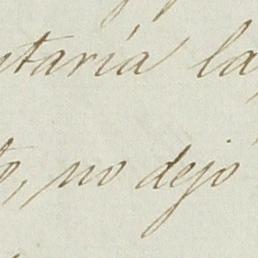 ntaría la
o, no dejo